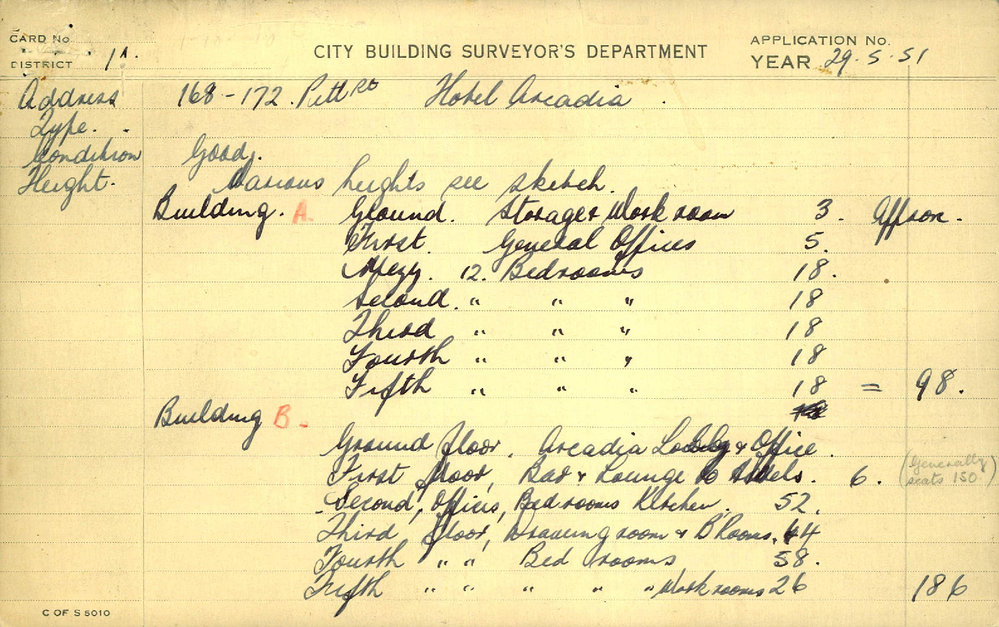 CARD No.
CITY BUILDING SURVEYOR'S DEPARTMENT
APPLICATION No.
DISTRICT 1A.
YEAR 29.5.51
Address 168-172. Pitt St Hotel Arcadia.
Type.
Condition Good.
Height. Various heights see sketch.
Building. A. Ground. Storage & Work room 3. Approx.
First. General Offices 5.
Mezz. 12. Bedrooms 18.
Second. " " " 18
Third " " " 18
Fourth " " " 18
Fifth " " " 18 = 98.
Building B.
Ground floor. Arcadia Lobby & Office.
First floor, Bar & Lounge 6. (Generally
seats 150)
Second, Offices, Bedrooms Kitchen. 52.
Third floor, Drawing room & B'Rooms. 44
Fourth " " Bed rooms 58.
Fifth " " " " " Work rooms 26 186
C OF S 5010